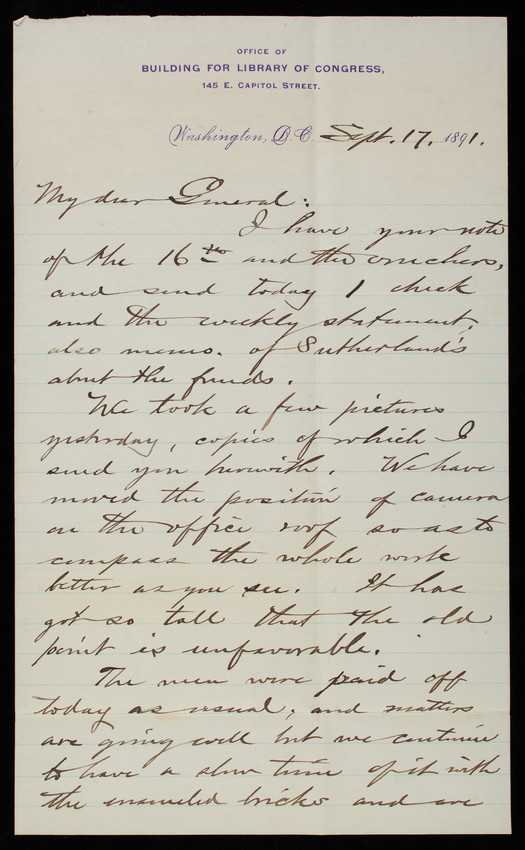 OFFICE OF
BUILDING FOR LIBRARY OF CONGRESS,
145 E. CAPITOL STREET.
Washington, D.C. Sept. 17. 1891.
My dear General:
I have your note
of the 16th and the vouchers,
and send today 1 check
and the weekly statement,
also memo. of Sutherland's
about the funds.
We took a few pictures
yesterday, copies of which I
send you herewith. We have
moved the position of camera
on the office roof so as to
compass the whole work
better as you see. It has
got so tall that the old
point is unfavorable.
The men were paid off
today as usual, and matters
are going well but we continue
to have a slow time of it with
the enameled bricks and are